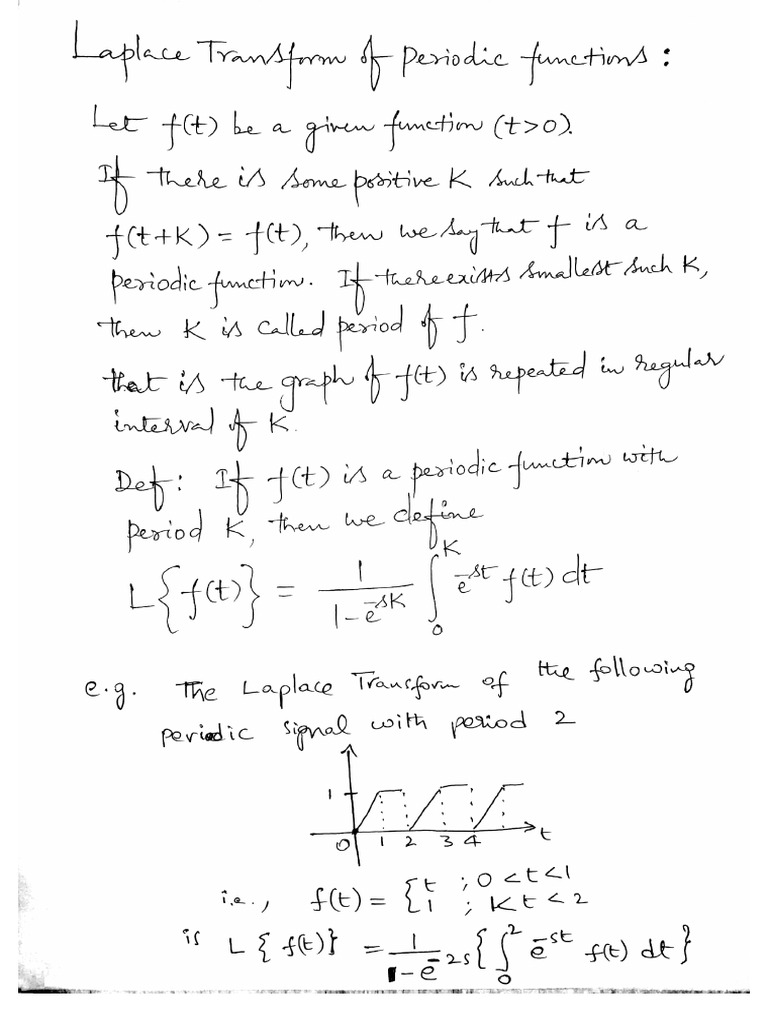 Laplace Transform of periodic functions :
Let f(t) be a given function (t>0).
If there is some positive K such that
f(t+K) = f(t), then we say that f is a
periodic function. If there exists smallest such K,
then K is called period of f.
that is the graph of f(t) is repeated in regular
interval of K.
Def: If f(t) is a periodic function with
period K, then we define
L{f(t)} = 1/(1-e^-sK) ∫_0^K e^-st f(t) dt
e.g. The Laplace Transform of the following
periodic signal with period 2
1
0 1 2 3 4 t
i.e., f(t) = { t ; 0<t<1
1 ; 1<t<2
is L{f(t)} = 1/(1-e^-2s) { ∫_0^2 e^-st f(t) dt }